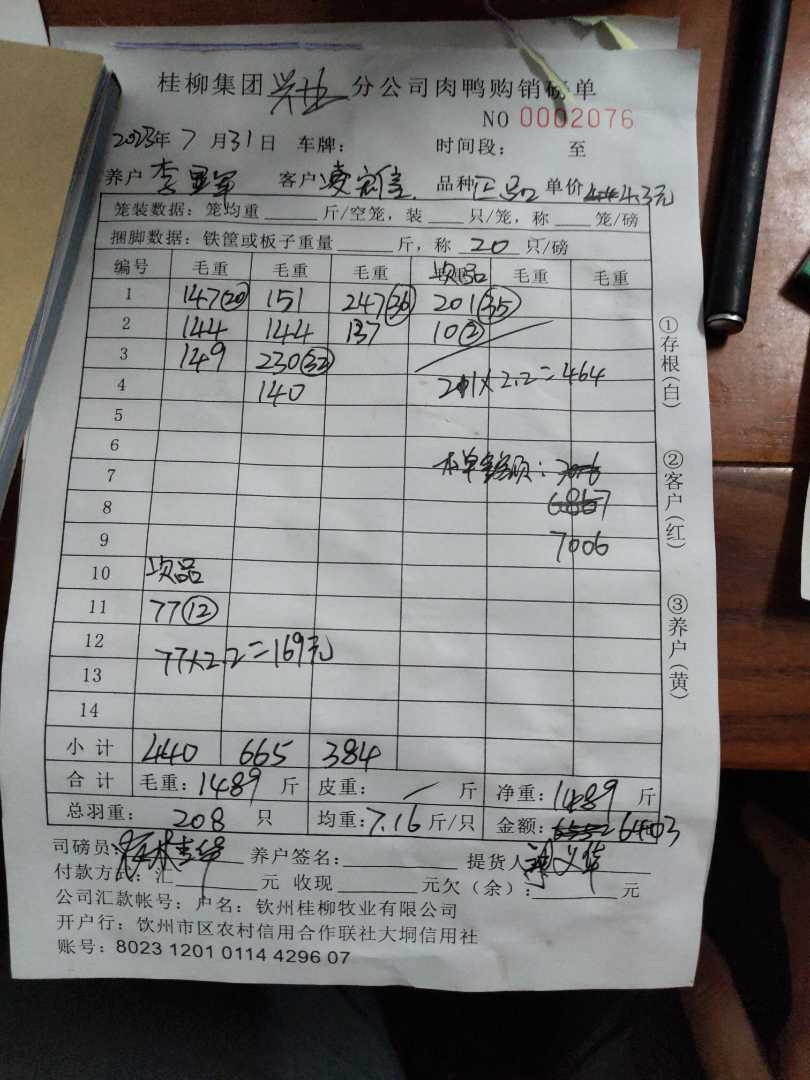 桂柳集团兴业分公司肉鸭购销磅单
NO 0002076
2023年 7 月 31 日 车牌： 时间段： 至
养户 李 客户 品种 正品 单价 4.3元
笼装数据：笼均重 斤/空笼，装 只/笼，称 笼/磅
捆脚数据：铁筐或板子重量 斤，称 20 只/磅
编号 毛重 毛重 毛重 次品 毛重 毛重
1 147(20) 151 247(36) 201(35)
2 144 144 137 10(2)
3 149 230(32)
4 140 211×2.2=464
5
6
7 本单金额：7076
8 6867
9 7006
10 次品
11 77(12)
12 77×2.2=169元
13
14
小计 440 665 384
合计 毛重：1489 斤 皮重： / 斤 净重：1489 斤
总羽重： 208 只 均重：7.16 斤/只 金额： 6403
司磅员： 养户签名： 提货人
付款方式：汇 元 收现 元欠（余）： 元
公司汇款帐号：户名：钦州桂柳牧业有限公司
开户行：饮州市区农村信用合作联社大垌信用社
账号：8023 1201 0114 4296 07
①存根(白)
②客户(红)
③养户(黄)